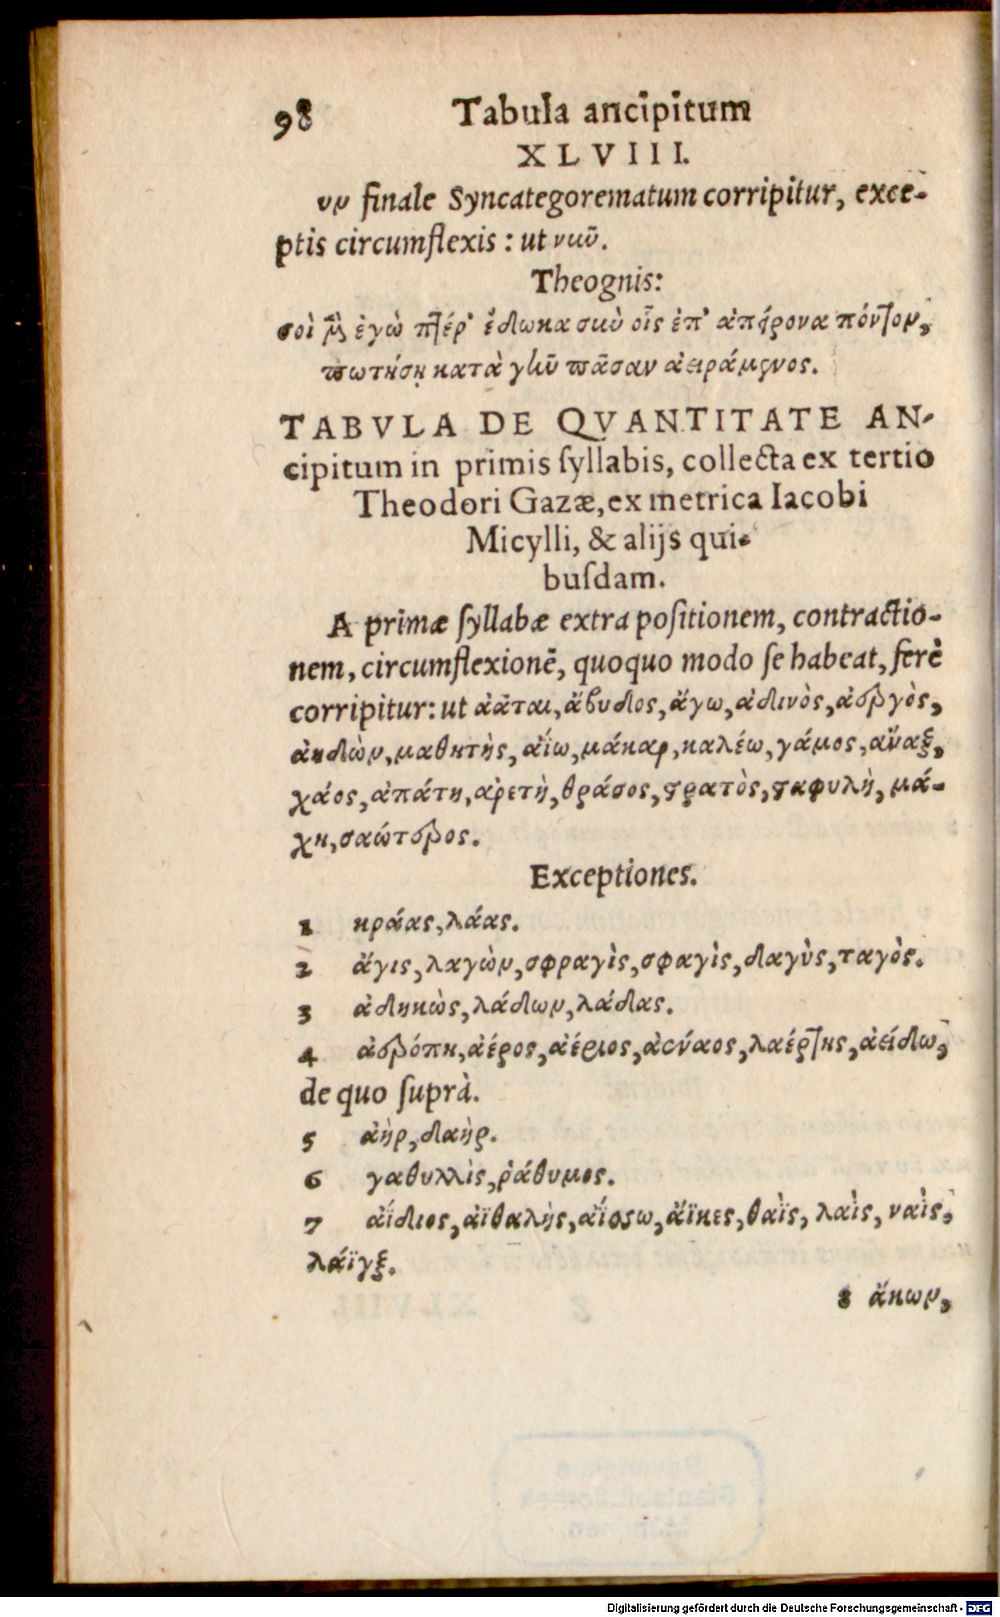 98 Tabula ancipitum
XLVIII.
υν finale Syncategorematum corripitur, exce-
ptis circumflexis: ut νυῦ.
Theognis:
σοὶ μὲν ἐγὼ πτέρ' ἔδωκα σὺν οἷς ἐπ' ἀπείρονα πόντον,
πωτήσῃ κατὰ γῆν πᾶσαν ἀειράμενος.
TABVLA DE QVANTITATE AN-
cipitum in primis syllabis, collecta ex tertio
Theodori Gazæ, ex metrica Iacobi
Micylli, & alijs qui-
busdam.
A primæ syllabæ extra positionem, contractio-
nem, circumflexionē, quoquo modo se habeat, ferè
corripitur: ut ἀάται, ἄβυδος, ἄγω, ἀδινὸς, ἀεργὸς,
ἀηδὼν, μαθητὴς, ἀΐω, μάκαρ, καλέω, γάμος, ἄναξ,
χάος, ἀπάτη, ἀρετὴ, θράσος, στρατὸς, σταφυλὴ, μά-
χη, σαώτερος.
Exceptiones.
1 κράας, λάας.
2 ἄγις, λαγὼν, σφραγὶς, σφαγὶς, δαγὺς, ταγὸς.
3 ἀδηκὼς, λάδων, λάδας.
4 ἀερόπη, ἀέρος, ἀέριος, ἀέναος, λαέρτης, ἀείδω,
de quo suprà.
5 ἀὴρ, δαὴρ.
6 γαθυλλὶς, ῥάθυμος.
7 ἀΐδιος, ἀϊθαλὴς, ἀΐσσω, ἄϊκες, θαῒς, λαῒς, ναῒς,
λάϊγξ.
8 ἄκων,
Digitalisierung gefördert durch die Deutsche Forschungsgemeinschaft - DFG